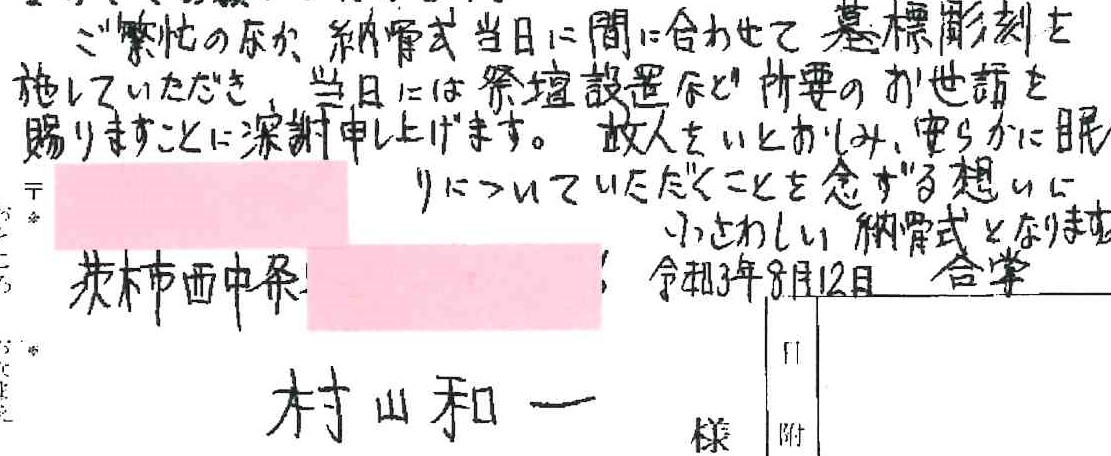 ご繁忙のなか、納骨式当日に間に合わせて墓標彫刻を
施していただき、当日には祭壇設置など所要のお世話を
賜りますことに深謝申し上げます。故人をいとおしみ、安らかに眠
りについていただくことを念ずる想いに
ふさわしい納骨式となります
令和3年8月12日 合掌
〒
おところ
茨木市西中条
おなまえ
村山和一
様
日附